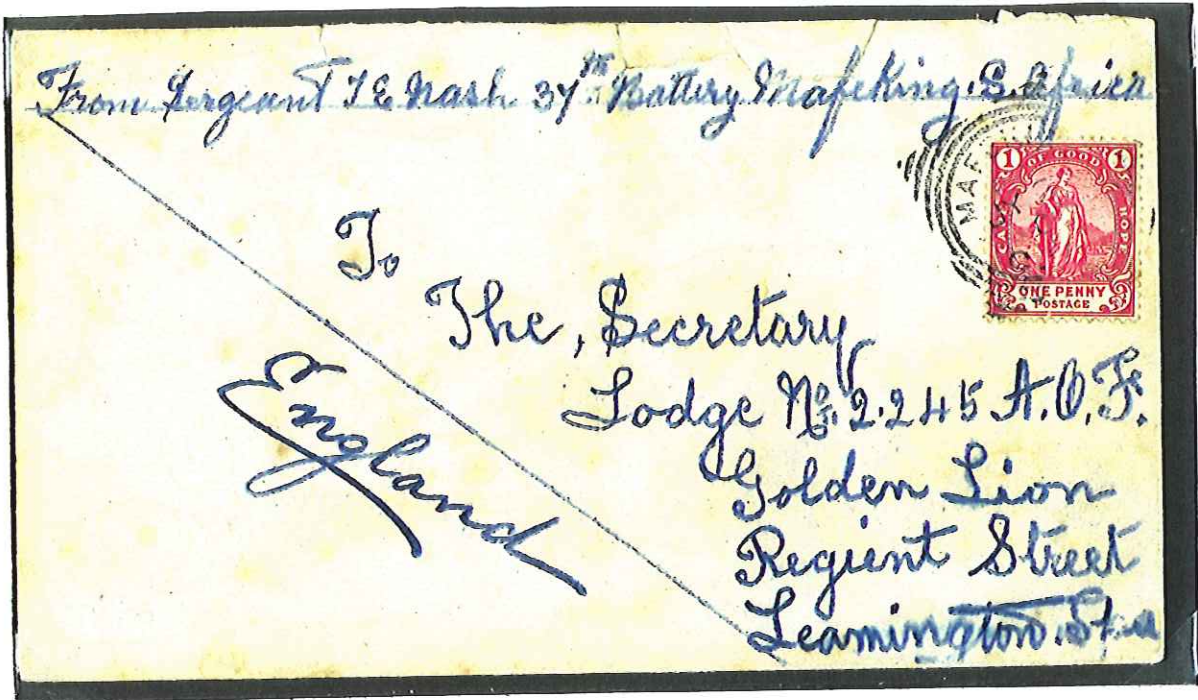 From Sergeant T E Nash 37th Battery Mafeking. S. Africa
To
The, Secretary
Lodge No. 2.245 A.O.F.
Golden Lion
Regient Street
Leamington. Spa
England
1 OF GOOD 1
CAPE HOPE
ONE PENNY
POSTAGE